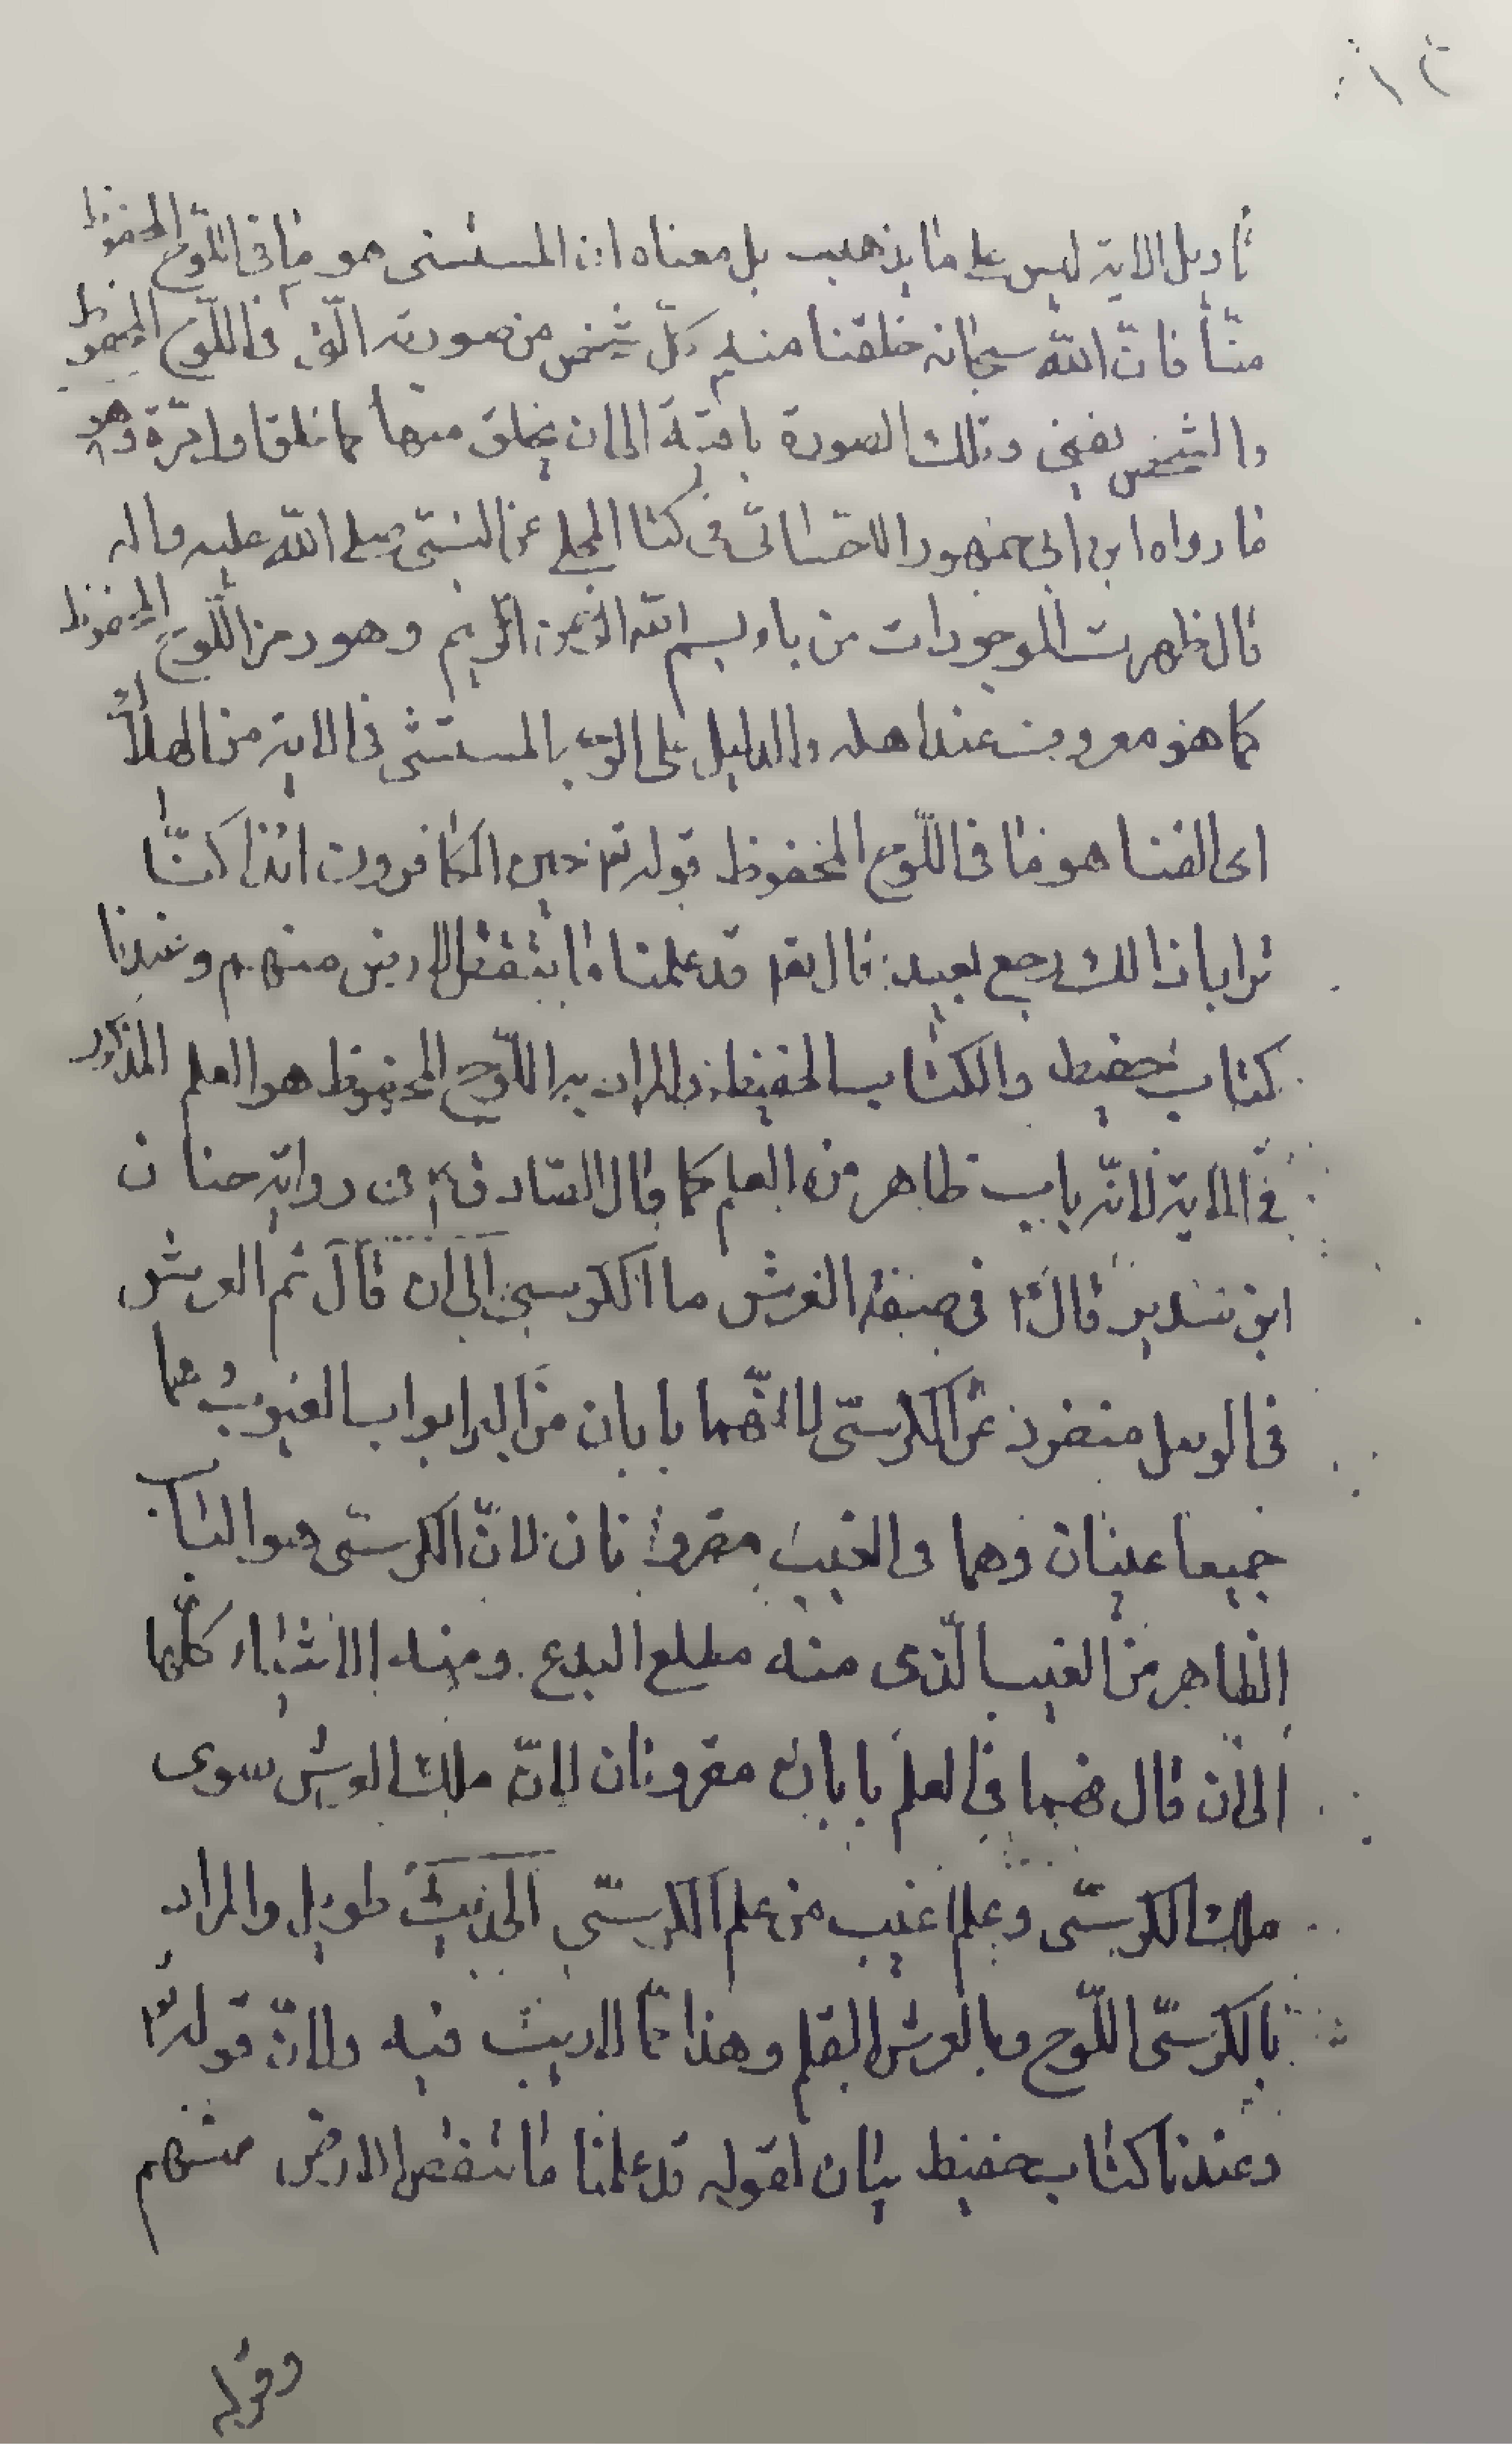 تأويل الاية ليس على ما يذهب بل معناه ان المستثنى هو ما فى اللّوح المحفوظ
منّا فانّ اللّه سبحانه خلقنا منه كلّ شخص من صورته الّتى فى اللّوح المحفوظ
والشخص يفنى وتلك الصورة باقية الى ان يخلق منها كما خلق اول مرّة وهو
ما رواه ابن ابى جمهور الاحسائى فى كتا المجلى عن النبىّ صلى اللّه عليه واله
قال ظهرت الموجودات من باء بسم اللّه الرّحمن الرّحيم وهو رمز اللّوح المحفوظ
كما هو معروف عند اهله والدليل على ان المستثنى فى الاية من الهلاك
اى الفنا هو ما فى اللّوح المحفوظ قوله تع حين الكافرون ائذا كنّا
ترابا ذالك رجع بعيد قال تع قد علمنا ما تنقص الارض منهم وعندنا
كتاب حفيظ والكتاب الحفيظ والمراد به اللّوح المحفوظ هو العلم المذكور
فى الاية لانّه باب ظاهر من العلم كما قال الصّادق ع فى رواية حنان
ابن سدير قال ع فى صفة العرش ما الكرسى الى ان قال ثم العرش
فى الوصل متفرد عن الكرسىّ لانّهما بابان من اكبر ابواب الغيوب وهما
جميعا غيبان وهما فى الغيب مقرونان لانّ الكرسىّ هو الباب
الظاهر من الغيب الّذى منه مطلع البدع ومنه الاشياء كلّها
الى ان قال فهما فى العلم بابان مقرونان لانّ ملك العرش سوى
ملك الكرسىّ وعلمه اغيب من علم الكرسىّ الحديث طويل والمراد
بالكرسىّ اللّوح وبالعرش القلم وهذا ممّا لا ريب فيه ولانّ قوله تع
وعندنا كتاب حفيظ بيان لقوله قد علمنا ما تنقص الارض منهم
وقوله